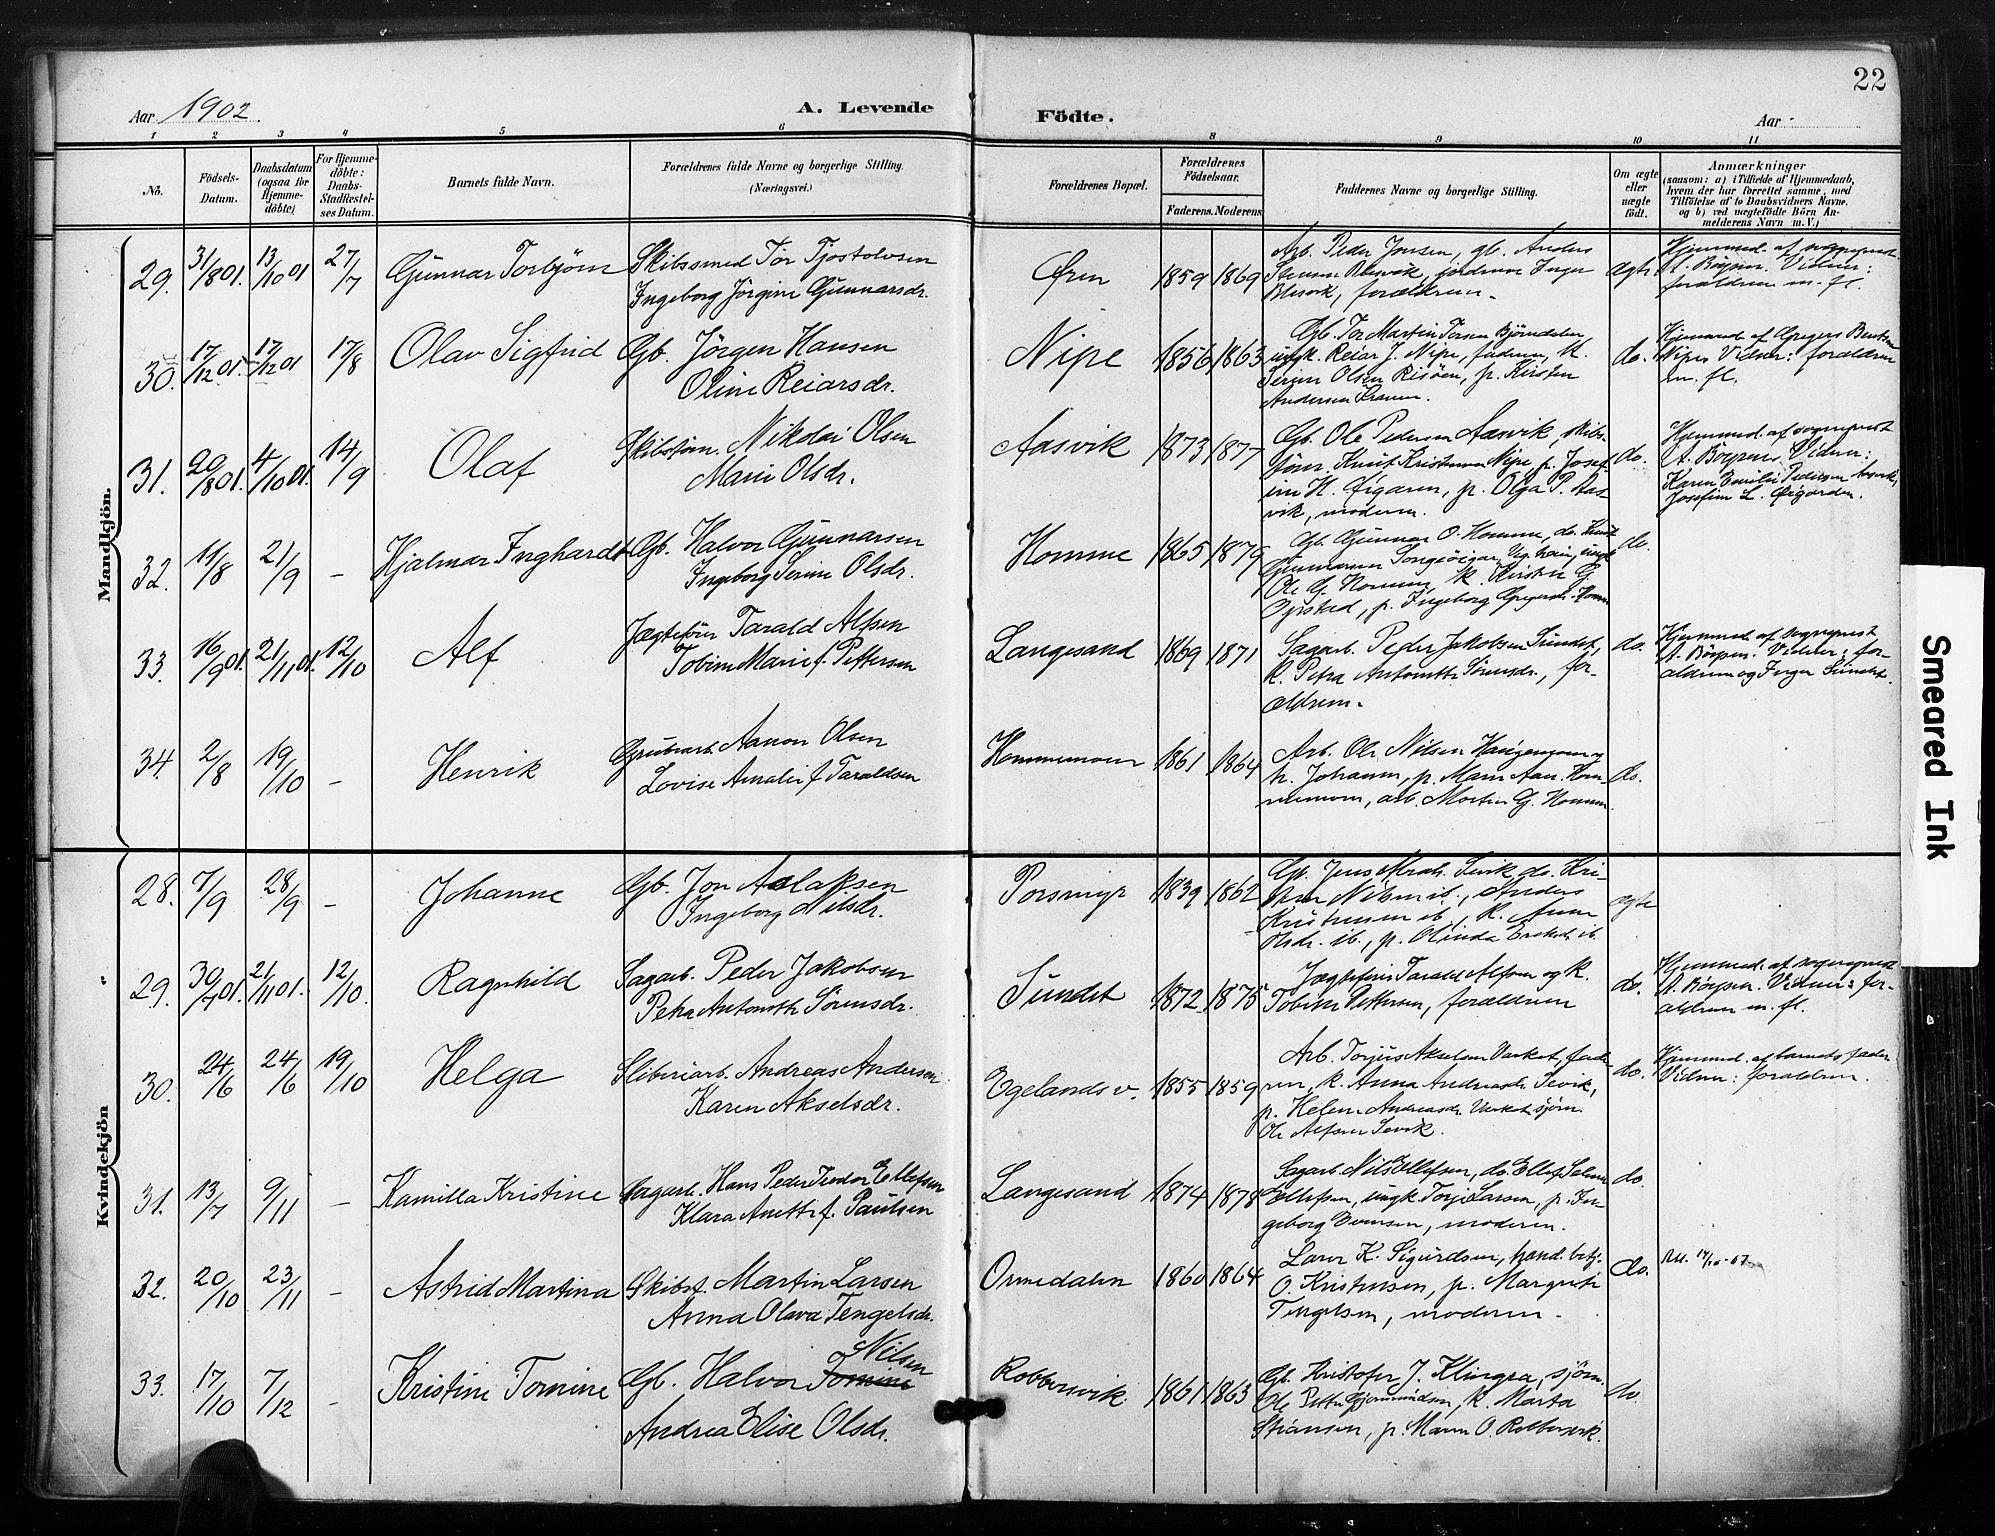 22
Aar 1902.
A. Levende
Födte.
Aar
1 2 3 4 5 6 8 9 10 11
No.
Födsels-
Datum.
Daabsdatum
(ogsaa for
Hjemme-
döbte)
For Hjemme-
döbte:
Daabs-
Stadfæstel-
ses Datum.
Barnets fulde Navn.
Forældrenes fulde Navne og borgerlige Stilling.
(Næringsvei.)
Forældrenes Bopæl.
Forældrenes
Födselsaar.
Faderens. Moderens
Faddernes Navne og borgerlige Stilling.
Om ægte
eller
uægte
födt.
Anmærkninger
(saasom: a) i Tilfælde af Hjemmedaab,
hvem der har forrettet samme, med
Tilföielse af to Daabsvidners Navne.
og b) ved uægtefödte Börn An-
melderens Navn m. V.)
Mandkjön.
29. 31/8 01. 13/10 01 27/7 Gunnar Torbjørn
Skibssmed Tor Tjostolvsen
Ingeborg Jörgine Gunnarsdr.
Øren 1859 1869
Arb. Peder Jensen, gb. Anders
forældrene.
ægte
Hjemmed. af sogneprest
A. Börpen. Vidner:
forældrene m. fl.
30. 17/12 01. 17/12 01 17/8 Olav Sigfrid
Gb. Jörgen Hansen
Oline Reiarsdr.
Nipe 1856 1863
Gb. Tor Martin Torsen Bjørndalen
ungk. Reiar J. Nipe, faderen, k.
Serine Olsen Risöen, p. Kirsten
Andersen
do.
Hjemmed. af Gregers Bentsen
Nipe. Vidner: forældrene
m. fl.
31. 20/8 01. 4/10 01. 14/9 Olaf
Skibstöm. Nikolai Olsen
Marie Olsdr.
Aasvik 1873 1877
Gb. Ole Pedersen Aasvik, skibs-
töm. Knut Kristensen Nipe, p. Josef-
ine H. Øigaren, p. Olga P. Aas-
vik, moderen.
do.
Hjemmed. af sogneprest
A. Börpen. Vidner:
Karen Emilie Pedersen Aasvik,
Josefine L. Øigarden.
32. 11/8 21/9 – Hjalmar Inghardt
Gb. Halvor Gunnarsen
Ingeborg Serine Olsdr.
Homme 1865 1879
Gb. Gunnar O. Homme, do. Knut
Gunnarsen Songeöigar,
Ole G. Homme, k. Kirsten G.
p. Ingeborg
do.
33. 16/9 01. 21/11 01. 12/10 Alf
Jægtefører Tarald Alfsen
Tobine Marie f. Pettersen
Langesand 1869 1871
Sagarb. Peder Jakobsen Sundet,
k. Petra Antonette Sörensdr., for-
ældrene.
do.
Hjemmed. af sogneprest
A. Börpen. Vidner: for-
ældrene og Inger Sundet.
34. 2/8 19/10 – Henrik
Grubearb. Aanon Olsen
Lovise Amalie f. Taraldsen
Hommemoen 1861 1864
Arb. Ole Nilsen Haugenmoen og
h. Johanne, p. Marie Aan. Hom-
memoen, arb. Martin G. Homme.
do.
Kvindekjön
28. 7/9 28/9 – Johanne
Gb. Jon Aslaksen
Ingeborg Nilsdr.
Porsmyr 1839 1862
Gb. Jens Sevik, do. Kri-
Nilsen ib., Anders
Kristensen ib., k. Anne
Olsdr. ib., p. Olinda ib.
ægte
29. 30/7 01. 21/11 01. 12/10. Ragnhild
Sagarb. Peder Jakobsen
Petra Antonette Sörensdr.
Sundet 1872 1875
Jægtefører Tarald Alfsen og k.
Tobine Pettersen, forældrene
do.
Hjemmed. af sogneprest
A. Börpen. Vidner: for-
ældrene m. fl.
30. 24/6 24/6 19/10 Helga
Sliberiarb. Andreas Andersen
Karen Akselsdr.
Egelands v. 1855 1859
Arb. Torjus Akselsen Værket, fade-
ren, k. Anna Andreasdr. Sevik,
p. Helene Andreasdr. Værket, sjöm.
Ole Alfsen Sevik.
do.
Hjemmed. af barnets fader
Vidner: forældrene.
31. 13/7 9/11 – Kamilla Kristine
Sagarb. Hans Peder Teodor Ellefsen
Klara Anette f. Paulsen
Langesand 1874 1878
Sagarb. Nils Ellefsen, do. Ellef
Ellefsen, ungk. Torje Larsen, p. In-
geborg Evensen, moderen.
do.
32. 20/10 23/11 – Astrid Martina
Skibsf. Martin Larsen
Anna Olava Tengelsdr.
Ormedalen 1860 1864
Lars K. Sigurdsen, hand. betj.
O. Kristensen, p. Margrete
Tengelsen, moderen.
do.
33. 17/10 7/12 – Kristine Tomine
Nilsen
Gb. Halvor Tomine
Andrea Elise Olsdr.
Robbersvik 1861 1863
Gb. Kristofer J. Klingra, sjöm.
Ole Petter Gjermundsen, k. Marta
Stiansen, p. Maren O. Robbersvik.
do.
Smeared Ink